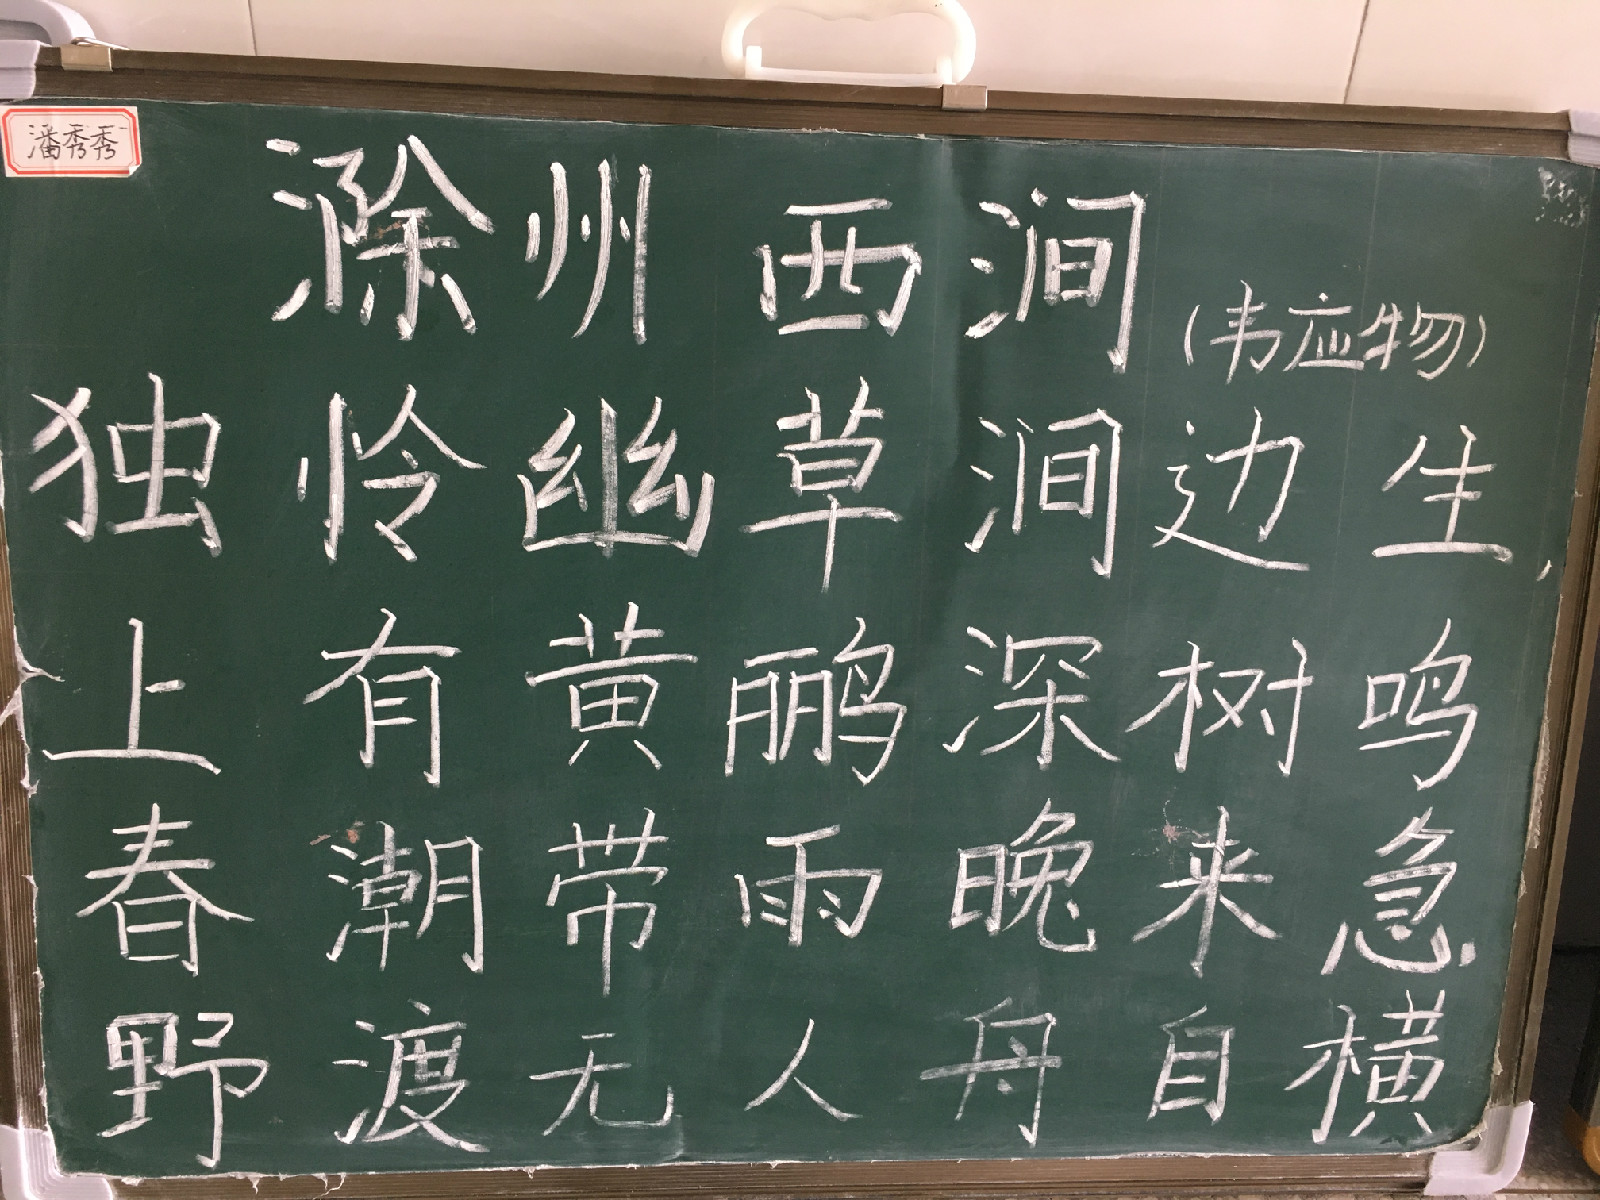 潘秀秀
滁州西涧
(韦应物)
独怜幽草涧边生,
上有黄鹂深树鸣
春潮带雨晚来急.
野渡无人舟自横